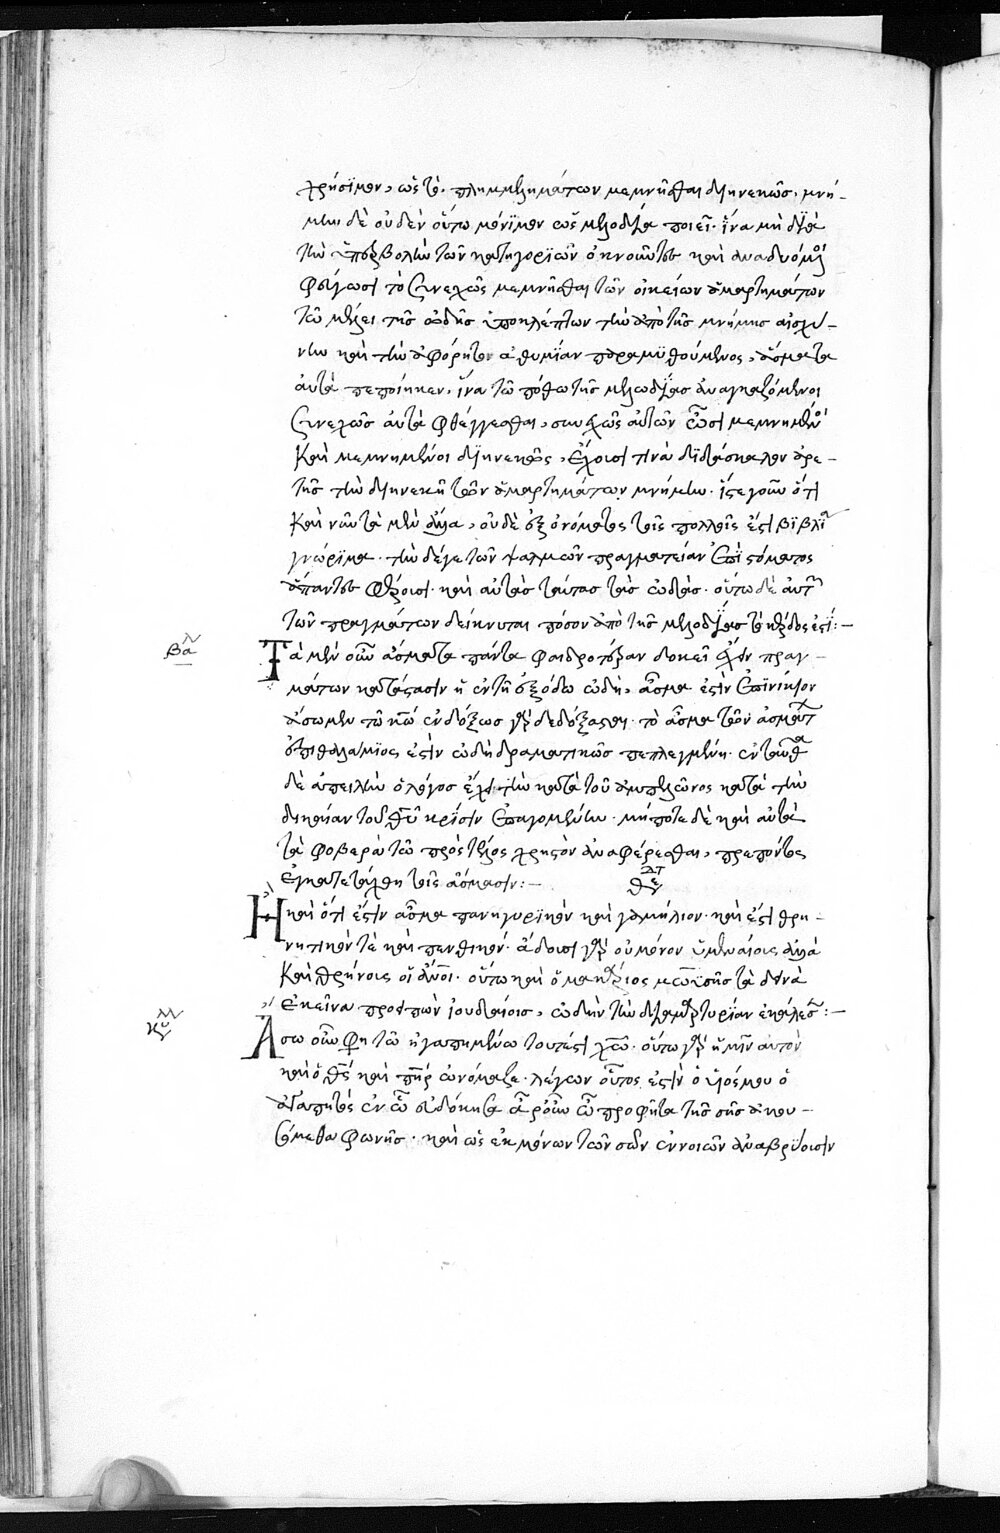 χρήσιμον, ὡς τὸ πλημμελημάτων μεμνῆσθαι διηνεκῶς. μνή-
μην δὲ οὐδὲν οὕτω μόνιμον ὡς μελωδία ποιεῖ. ἵνα μὴ διὰ
τὴν ὑπερβολὴν τῶν κατηγοριῶν ὀκνοῦντες καὶ ἀναδυόμενοι
φεύγωσι τὸ συνεχῶς μεμνῆσθαι τῶν οἰκείων ἁμαρτημάτων
τῷ μέλει τῆς ᾠδῆς ὑποκλέπτων τὴν ἀπὸ τῆς μνήμης αἰσχύ-
νην καὶ τὴν ἀφόρητον ἀθυμίαν παραμυθούμενος, ᾄσματα
αὐτὰ πεποίηκεν, ἵνα τῷ πόθῳ τῆς μελωδίας ἀναγκαζόμενοι
συνεχῶς αὐτὰ φθέγγεσθαι, συνεχῶς αὐτῶν ὦσι μεμνημένοι
καὶ μεμνημένοι διηνεκῶς, ἔχοιεν τινὰ διδάσκαλον ἀρε-
τῆς τὴν διηνεκῆ τῶν ἁμαρτημάτων μνήμην. ἴστε γοῦν ὅτι
καὶ νῦν τὰ μὲν ἄλλα, οὐδὲ ἐξ ὀνόματος τοῖς πολλοῖς ἐστι βιβλία
γνώριμα. τὴν δέ γε τῶν ψαλμῶν πραγματείαν ἐπὶ στόματος
ἅπαντες φέρουσι. καὶ αὐτὰς ταύτας τὰς ᾠδάς. οὕτω δὲ αὐτῶν
τῶν πραγμάτων δείκνυται πόσον ἀπὸ τῆς μελωδίας τὸ κέρδος ἐστί:-
Βασιλ Τὰ μὲν οὖν ᾄσματα πάντα φαιδροτέραν δοκεῖ ἔχειν πραγ-
μάτων κατάστασιν ἡ ἐν τῇ ἐξόδῳ ᾠδή, ᾆσμα ἐστὶν ἐπινίκιον
ᾄσωμεν τῷ κυρίῳ ἐνδόξως γὰρ δεδόξασται. τὸ ᾆσμα τῶν ᾀσμάτων
ἐπιθαλάμιος ἐστὶν ᾠδὴ δραματικῶς πεπλεγμένη. ἐνταῦθα
δὲ ἀπειλὴν ὁ λόγος ἔχει τὴν κατὰ τοῦ ἀμπελῶνος κατὰ τὴν
δικαίαν τοῦ θεοῦ κρίσιν ἐπαγομένην. μήποτε δὲ καὶ αὐτὰ
τὰ φοβερὰ τῷ πρὸς τέλος χρηστὸν ἀναφέρεσθαι, πρεπόντως
ἐγκατετάχθη τοῖς ᾄσμασιν:-
Ἢ καὶ ὅτι ἐστὶν ᾆσμα πανηγυρικὸν καὶ γαμήλιον. καὶ ἔστι θρη-
νητικόν τε καὶ πενθικόν. ᾄδουσι γὰρ οὐ μόνον ὑμεναίοις ἀλλὰ
καὶ θρήνοις οἱ ἄνθρωποι. οὕτω καὶ ὁ μακάριος μωϋσῆς τὰ δεινὰ
ἐκεῖνα προειπὼν ἰουδαίοις, ᾠδὴν τὴν διαμαρτυρίαν ἐκάλεσε:-
Κυρ Ἄσω οὖν φησι τῷ ἠγαπημένῳ τουτέστι χριστῷ. οὕτω γὰρ ἡμῖν αὐτὸν
καὶ ὁ θεὸς καὶ πατὴρ ὠνόμαζε λέγων οὗτος ἐστὶν ὁ υἱός μου ὁ
ἀγαπητὸς ἐν ᾧ εὐδόκησα ἆρ' οὖν ὦ προφῆτα τῆς σῆς ἀκου-
σόμεθα φωνῆς. καὶ ὡς ἐκ μόνων τῶν σῶν ἐννοιῶν